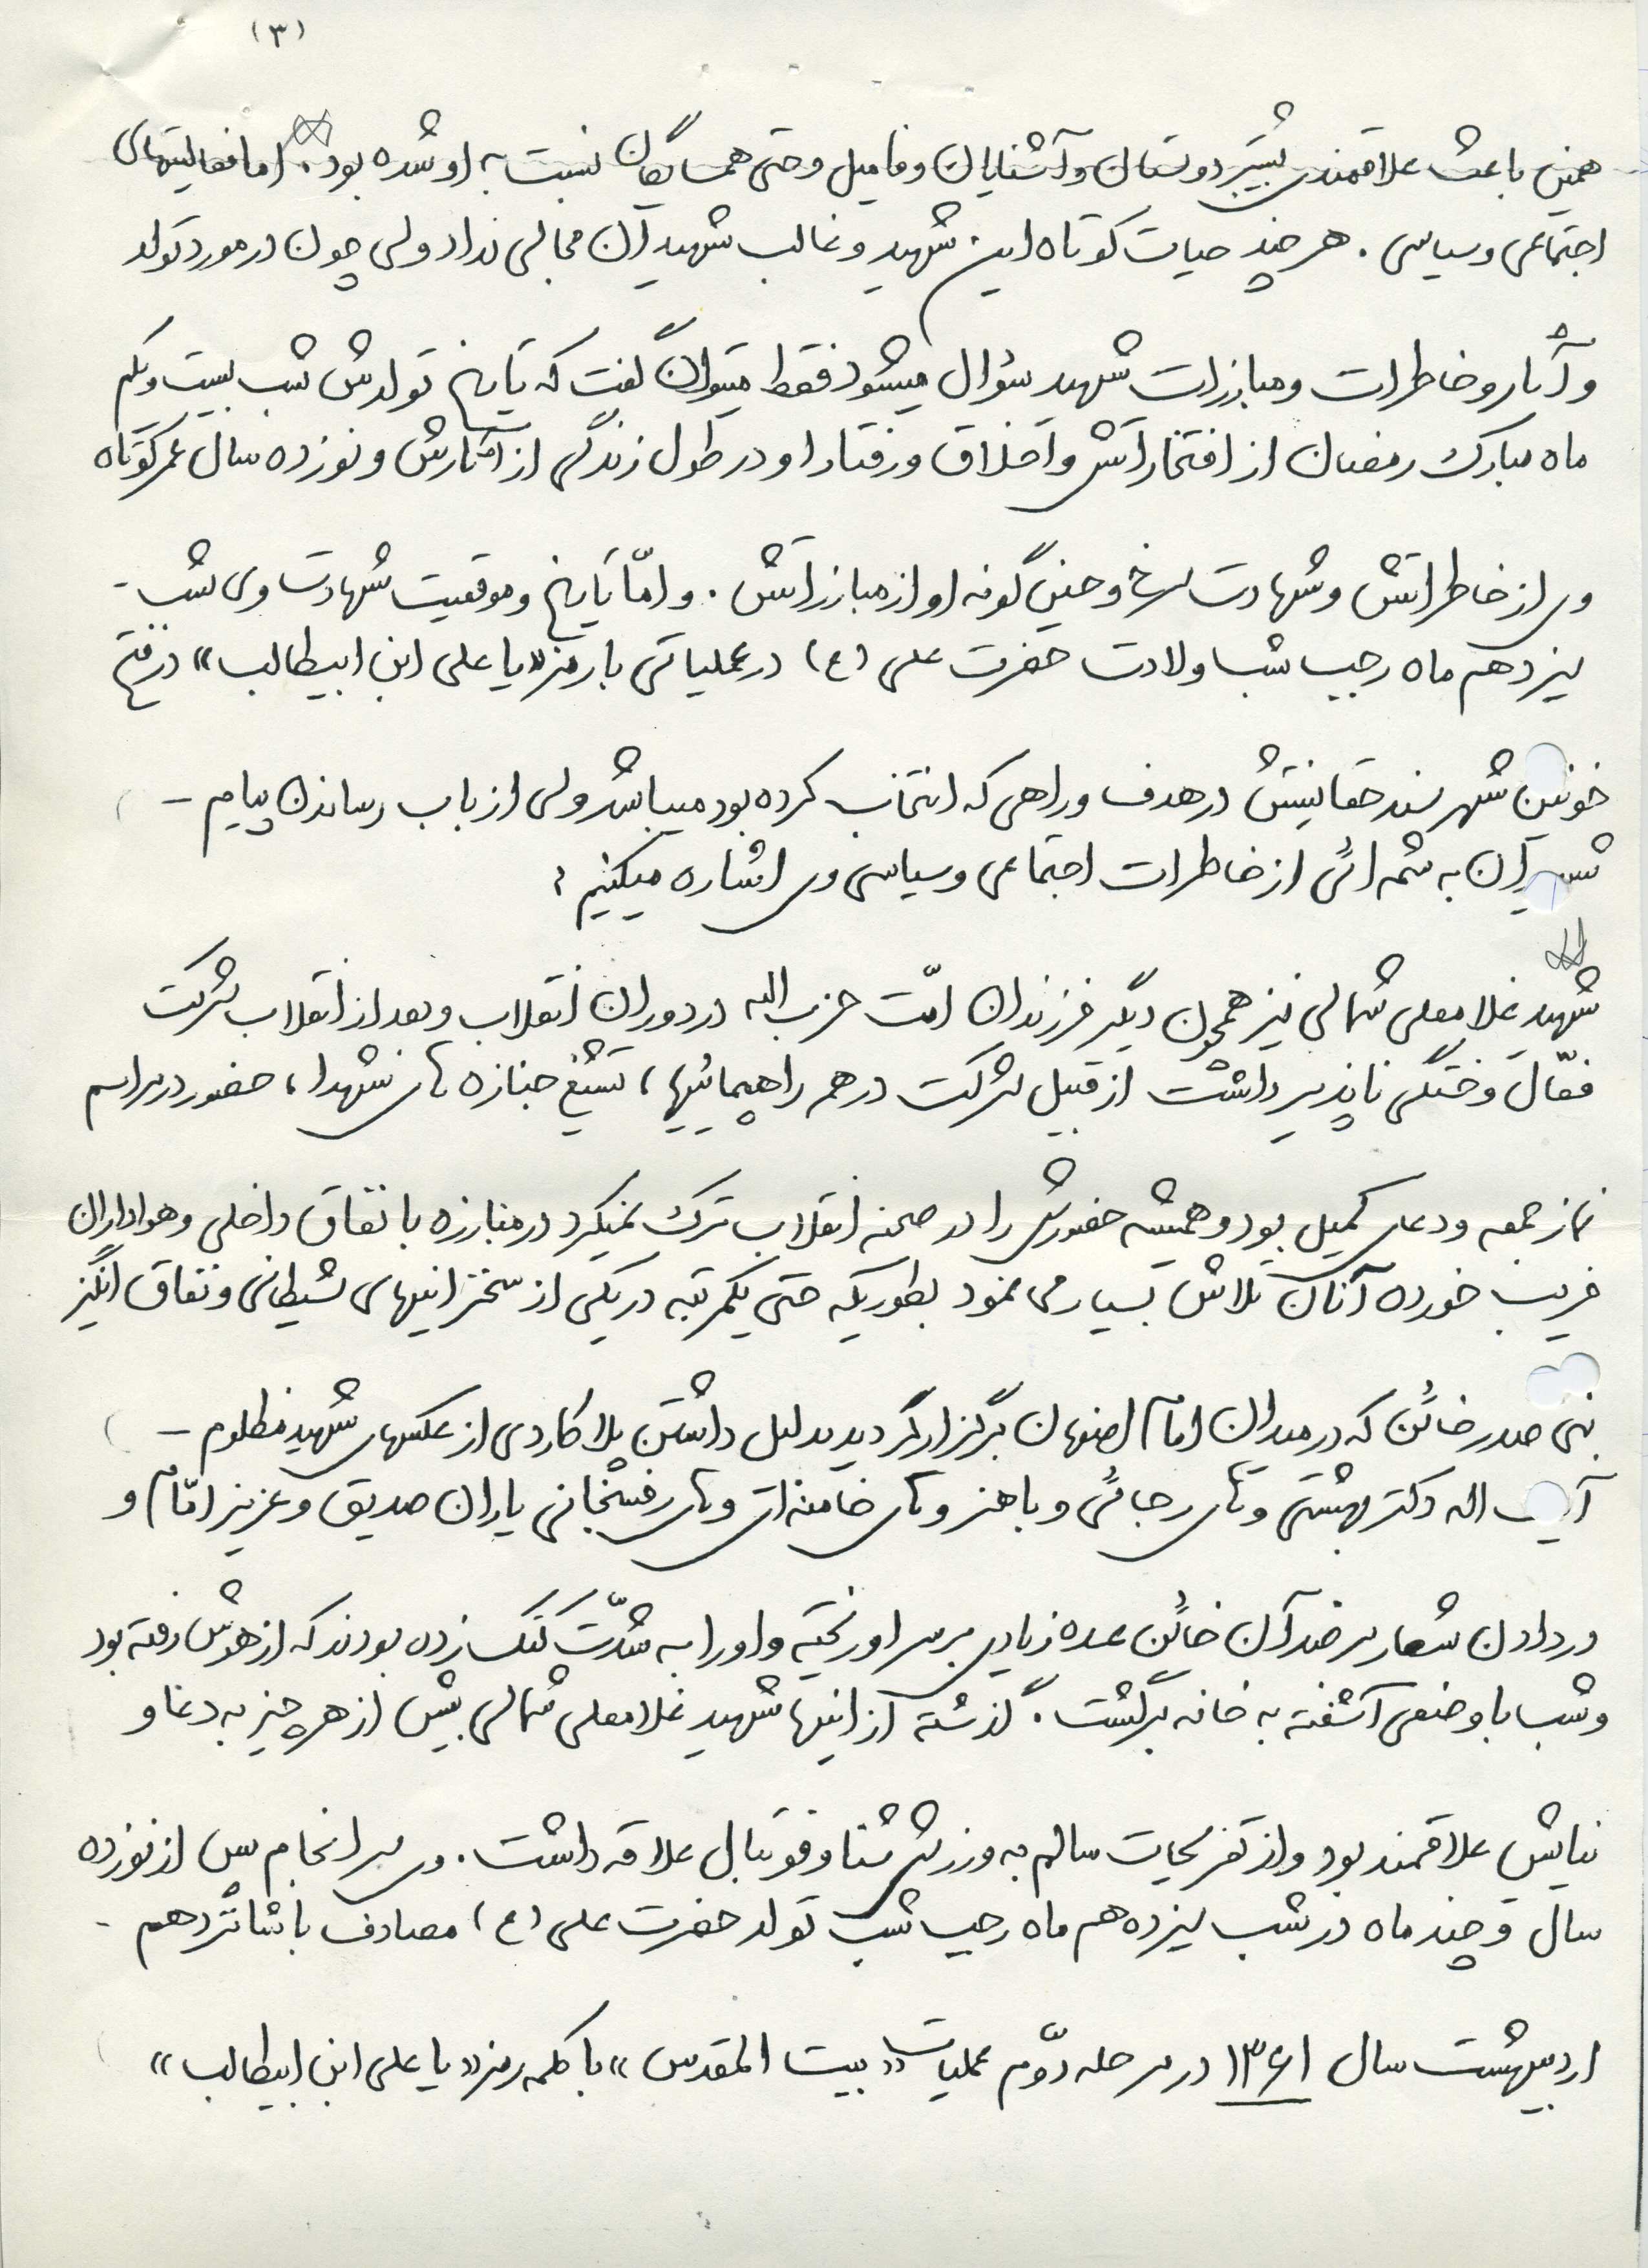 (۳)
همین باعث علاقمندی بیشتر دوستان و آشنایان و فامیل و حتی همسایگان نسبت به او شده بود. اما فعالیتهای
اجتماعی و سیاسی. هر چند حیات کوتاه این شهید و غالب شهیدان مجالی ندارد ولی چون در مورد تولد
و آثار و خاطرات و مبارزات شهید سؤال میشود فقط میتوان گفت که تاریخ تولدش شب بیست و یکم
ماه مبارک رمضان از افتخاراتش و اخلاق و رفتار او در طول زندگی از آثارش و نوزده سال عمر کوتاه
وی از خاطراتش و شهادت سرخ و حسین گونه او از مبارزاتش. و امّا تاریخ و موقعیت شهادت وی شب -
سیزدهم ماه رجب شب ولادت حضرت علی (ع) در عملیاتی با رمز «یا علی ابن ابیطالب» در فتح
خونین شهر سند حقانیتش در هدف و راهی که انتخاب کرده بود میباشد ولی از باب رساندن پیام -
شهیدان به شمه ائی از خاطرات اجتماعی و سیاسی وی اشاره میکنیم:
شهید غلامعلی شمالی نیز همچون دیگر فرزندان امّت حزب اله در دوران انقلاب و بعد از انقلاب شرکت
فعّال و خستگی ناپذیر داشت از قبیل شرکت در همه راهپیمائیها، تشییع جنازه های شهدا، حضور در مراسم
نماز جمعه و دعای کمیل بود و همیشه حضورش را در صحنه انقلاب ترک نمیکرد در مبارزه با نفاق داخلی و هواداران
فریب خورده آنان تلاش بسیار می نمود بطوریکه حتی یکمرتبه در یکی از سخنرانیهای شیطانی و نفاق انگیز
بنی صدر خائن که در میدان امام اصفهان برگزار گردید بدلیل داشتن پلاکاردی از عکسهای شهید مظلوم -
آیت اله دکتر بهشتی و های رجائی و باهنر و های خامنه ای و های رفسنجانی یاران صدیق و عزیز امّام و
در دادن شعار بر ضد آن خائن عده زیادی بر سر او ریخته و او را به شدّت کتک زده بودند که از هوش رفته بود
و شب با وضعی آشفته به خانه برگشت. گذشته از اینها شهید غلامعلی شمالی بیش از هر چیز به دعا و
نیایش علاقمند بود و از تفریحات سالم به ورزش شنا و فوتبال علاقه داشت. وی سرانجام پس از نوزده
سال و چند ماه در شب سیزدهم ماه رجب شب تولد حضرت علی (ع) مصادف با شانزدهم -
اردیبهشت سال ۱۳۶۱ در مرحله دوّم عملیات «بیت المقدس» با کلمه رمز «یا علی ابن ابیطالب»